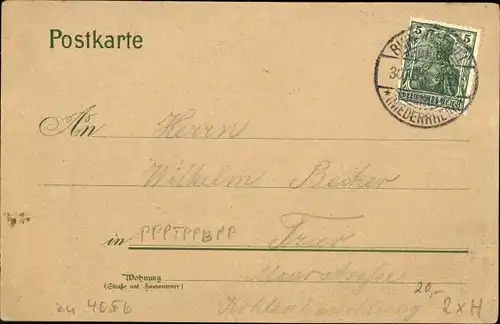 Postkarte
5 5
DEUTSCHES REICH
*(NIEDERRHEIN)
An Herrn
Wilhelm Becker
in PPPTPPBPP Trier
Wohnung
(Straße und Hausnummer)
Maarstraße
20,-
zu 4656
2xH